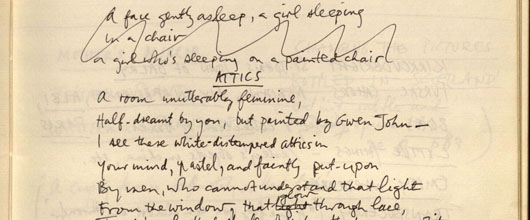 A face gently asleep, a girl sleeping
in a chair
or a girl who's sleeping on a painted chair.
ATTICS
A room unutterably feminine,
Half-dreamt by you, but painted by Gwen John —
I see these white-distempered attics in
Your mind, pastel, and faintly put-upon
By men, who cannot understand that light
From the window, that light through lace,